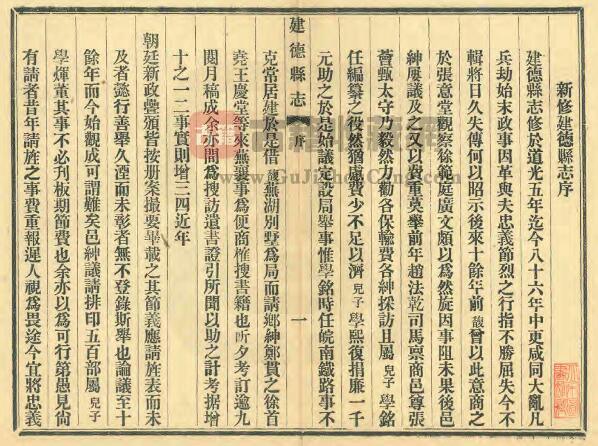 新修建德縣志序
建德縣志修於道光五年迄今八十六年中更咸同大亂凡
兵劫始末政事因革與夫忠義節烈之行指不勝屈失今不
輯將日久失傳何以昭示後來十餘年前馥曾以此意商之
於張意堂觀察徐範庭廣文頗以為然旋因事阻未果後邑
紳屢議及之又以費重莫舉前年趙法乾司馬禀商邑尊張
薈甄太守乃毅然力勸各保輸費各紳採訪且屬兒子學銘
任編纂之役然猶慮費少不足以濟兒子學熙復捐廉一千
元助之於是始議定設局舉事惟學銘時任皖南鐵路事不
建德縣志
序
一
克常居建於是借馥蕪湖別墅為局而請鄉紳鄭賛之徐首
堯王慶堂等來蕪襄事為便商榷搜書籍也昕夕考訂逾九
閱月稿成余亦間為搜訪遺書證引所聞以助之計考據增
十之一二事實則增三四近年
朝廷新政罄頒皆按册案撮要畢載之其節義應請旌表而未
及者懿行善舉久湮而未彰者無不登錄斯舉也論議至十
餘年而今始觀成可謂難矣邑紳議請排印五百部屬兒子
學煇董其事不必刋板期節費也余亦以為可行第愚見尙
有請者昔年請旌之事費重報遲人視為畏途今宜將忠義
古籍收藏網
www.GuJiShouCang.Com